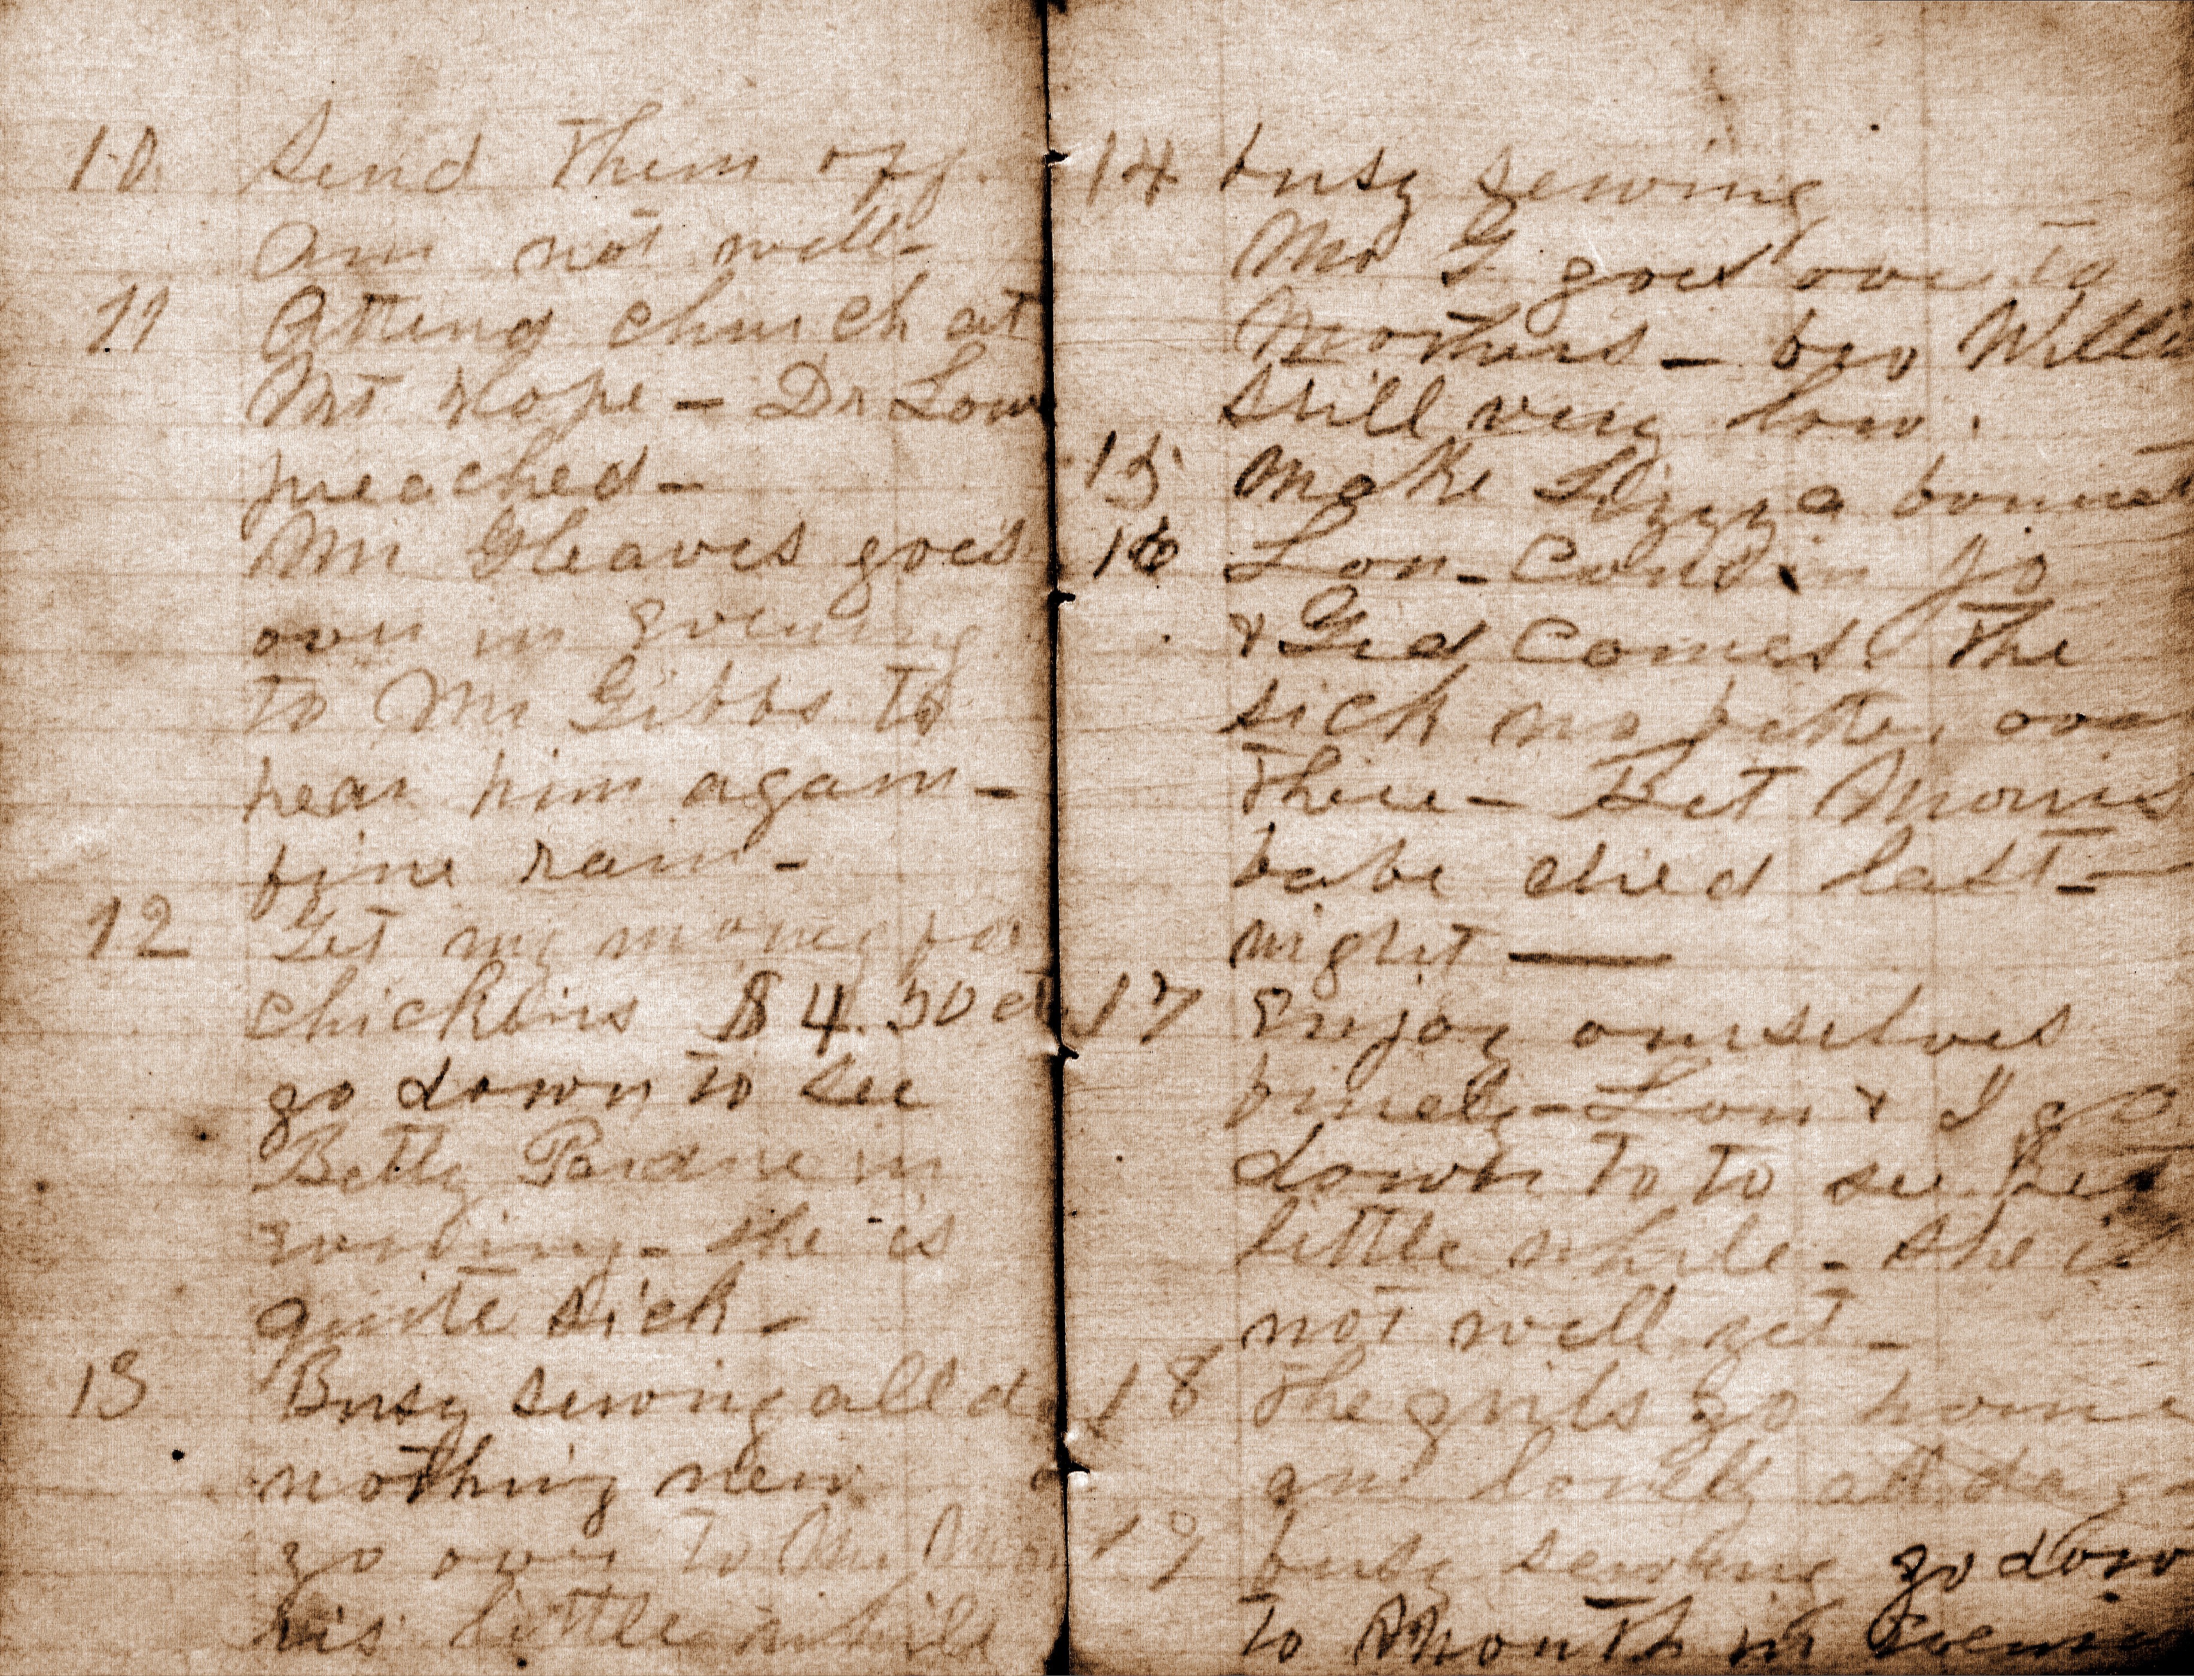 10 Send them off.
am not well-
11 Attend church at
Mt Hope - Dr Low
preached-
Mr Gleaves goes
over in evening
to Mr Gibbs to
hear him again-
fine rain-
12 Get my money for
chickens $4.50 ct
go down to see
Betty Pardue in
evening- she is
quite sick-
13 Busy sewing all d
nothing new
go over to Mr Mor
ris little while
14 busy sewing
Mr G goes over to
Mothers - bro Willie
still very low.
15 Make Lizzy a bonnet
16 Lou - Cousin Jo
& Ged comes. The
sick no better over
there - Bet Morris
babe died last-
night —
17 Enjoy ourselves
finely - Lou & I go
down to to see Bet
little while - she is
not well yet-
18 The girls go home
am lonely all day
19 busy sewing go down
to mouth in evening